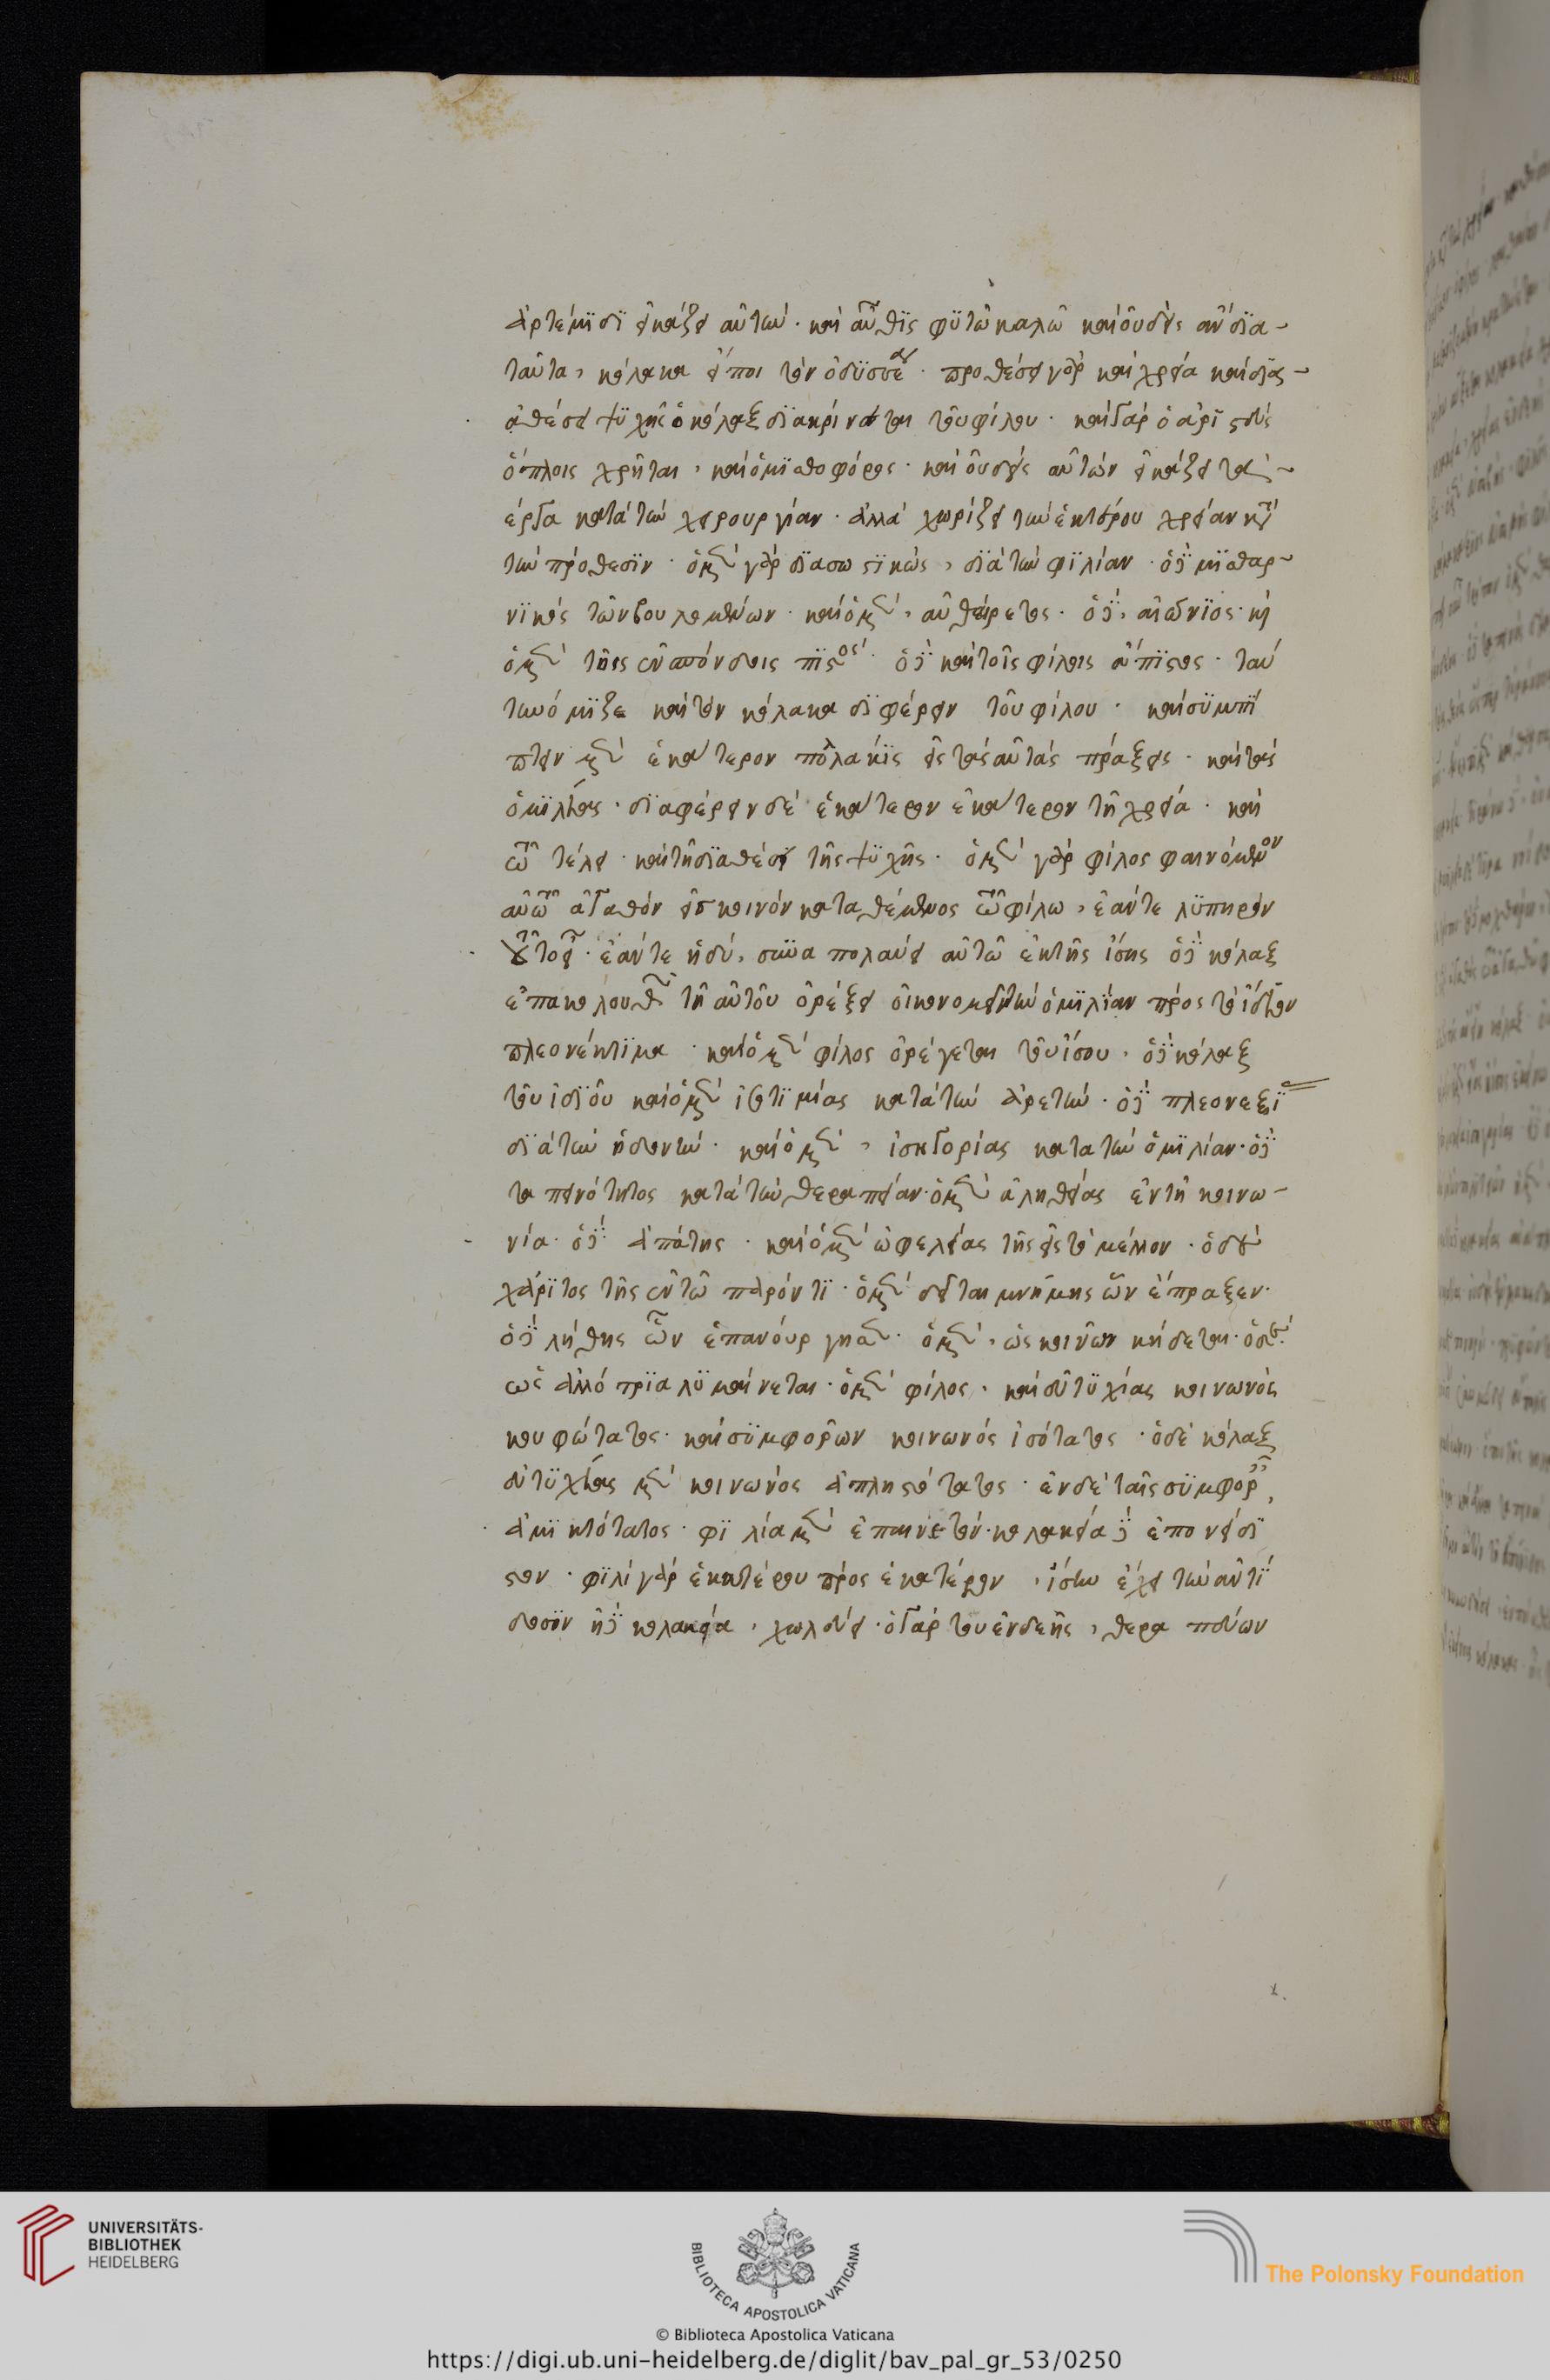 ἀρτέμϊδϊ εἰκάζει αὐτὴν· καὶ αὖθϊς φϋτῶ καλῶ καὶ οὐδεὶς ἂν δϊα-
ταῦτα, κόλακα εἴποι τὸν ὀδϋσσέα· προθέσει γὰρ καὶ χρεία καὶ δϊα-
αθέσει ψϋχῆς ὁ κόλαξ δϊακρίνεται τοῦ φίλου· καὶ γὰρ ὁ ἀρϊστεὺς
ὅπλοις χρῆται, καὶ ὁ μϊσθοφόρος· καὶ οὐδεὶς αὐτῶν εἰκάζει τὰ-
ἔργα κατὰ τὴν χειρουργίαν· ἀλλὰ χωρίζει τὴν ἑκατέρου χρείαν κατὰ
τὴν πρόθεσϊν· ὁ μὲν γὰρ δϊασωστϊκῶς, δϊὰ τὴν φϊλίαν· ὁ δὲ μϊσθαρ-
νϊκὸς τῶν βουλομένων· καὶ ὁ μὲν, αὐθαίρετος· ὁ δὲ, αἰώνϊος· καὶ
ὁ μὲν τοῖς ἐνσπόνδοις πϊστὸς· ὁ δὲ καὶ τοῖς φίλοις ἄπϊστος· ταύ
την ὀμϊζε καὶ τὸν κόλακα δϊφέρειν τοῦ φίλου· καὶ σϋμπϊ
πτειν μὲν ἑκάτερον πολάκϊς εἰς τὰς αὐτὰς πράξεις· καὶ τὰς
ὁμϊλίας· δϊαφέρειν δὲ ἑκάτερον ἑκατερον τῆ χρεία· καὶ
τῶ τέλει· καὶ τῆ δϊαθέσει τῆς ψϋχῆς· ὁ μὲν γὰρ φίλος φαινόμενον
αὐτῶ ἀγαθὸν εἰς κοινὸν καταθέμενος τῶ φίλω, ἐάντε λϋπηρὸν
τοῦτο εἴη· ἐάντε ἡδὺ, συναπολαύει αὐτῶ ἐκ τῆς ἴσης ὁ δὲ κόλαξ
ἐπακολουθῶν τῆ αὐτοῦ ὀρέξει οἰκονομεῖ τὴν ὁμϊλίαν πρὸς τὸ ἴδιον
πλεονέκτϊμα· καὶ ὁ μὲν φίλος ὀρέγεται τοῦ ἴσου· ὁ δὲ κόλαξ
τοῦ ἰδϊου καὶ ὁ μὲν ἰσοτϊμίας κατὰ τὴν ἀρετὴν· ὁ δὲ πλεονεξϊ
δϊὰ τὴν ἡδονὴν· καὶ ὁ μὲν, ἰσηγορίας κατα τὴν ὁμϊλίαν· ὁ δὲ
ταπεινότητος κατὰ τὴν θεραπείαν· ὁ μὲν ἀληθείας ἐν τῆ κοινω-
νία· ὁ δὲ ἀπάτης· καὶ ὁ μὲν ὠφελείας τῆς εἰς τὸ μέλλον· ὁ δὲ
χάρϊτος τῆς ἐν τῶ παρόντϊ· ὁ μὲν δεῖται μνήμης ὧν ἔπραξεν·
ὁ δὲ λήθης ὧν ἐπανούργησεν· ὁ μὲν, ὡς κοινῶν κήδεται· ὁ δὲ
ὡς ἀλλότρϊα λϋμαίνεται· ὁ μὲν φίλος, καὶ εὐτϋχίας κοινωνὸς
κουφώτατος· καὶ σϋμφορῶν κοινωνὸς ἰσότατος· ὁ δὲ κόλαξ
εὐτϋχίας μὲν κοινωνὸς ἀπληστότατος· ἐν δὲ ταῖς σϋμφοραῖς,
ἀμϊκτότατος· φϊλία μὲν ἐπαινετὸν· κολακεία δὲ ἐπονείδϊ
στον· φϊλὶ γὰρ ἑκατέρου πρὸς ἑκατέρον, ἴσην ἔχει τὴν ἀντϊ
δοσϊν ἡ δὲ κολακεία, χωλεύει· ὁ γὰρ του ἐνδεὴς, θεραπεύων
x.
UNIVERSITÄTS-
BIBLIOTHEK
HEIDELBERG
BIBLIOTECA APOSTOLICA VATICANA
The Polonsky Foundation
© Biblioteca Apostolica Vaticana
https://digi.ub.uni-heidelberg.de/diglit/bav_pal_gr_53/0250